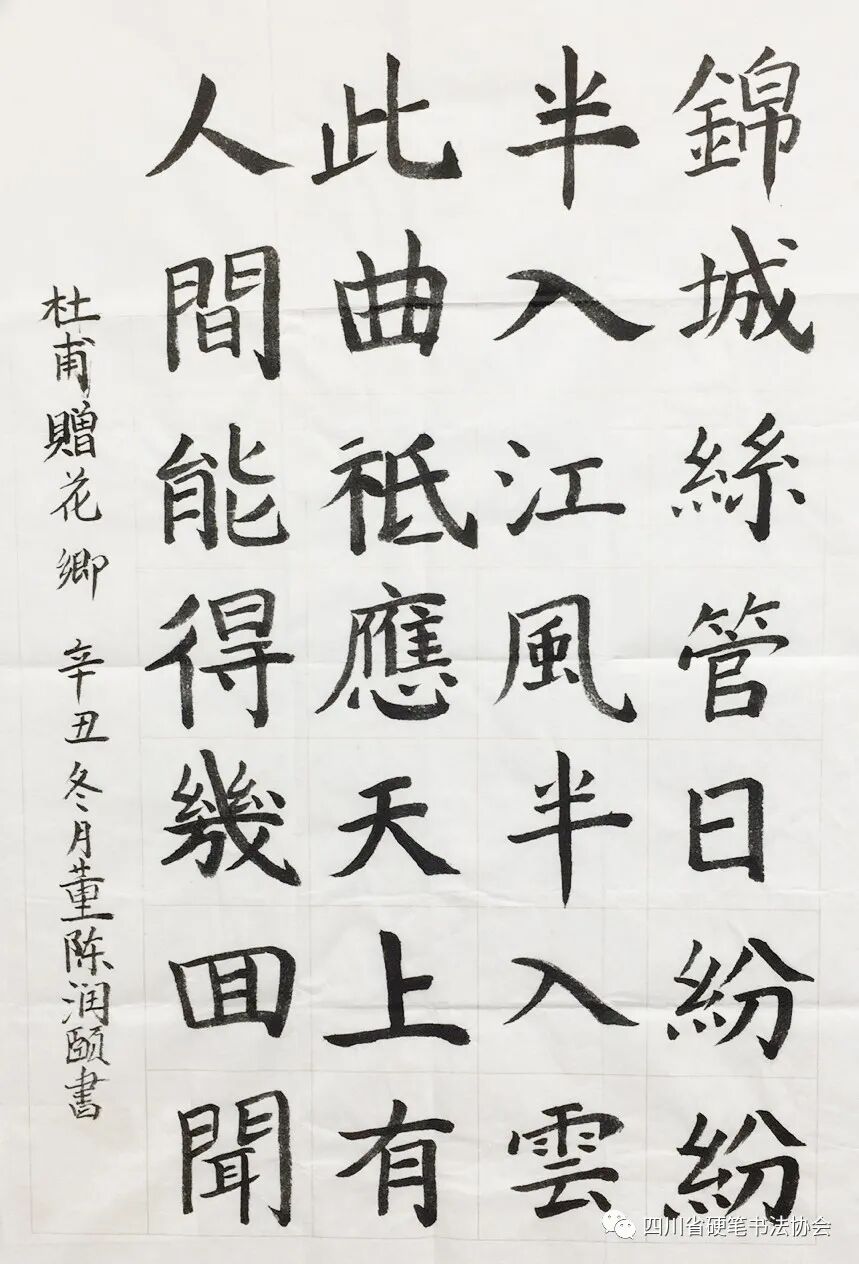 錦城絲管日紛紛
半入江風半入雲
此曲祗應天上有
人間能得幾回聞
杜甫贈花卿 辛丑冬月董陈润颐書
四川省硬笔书法协会